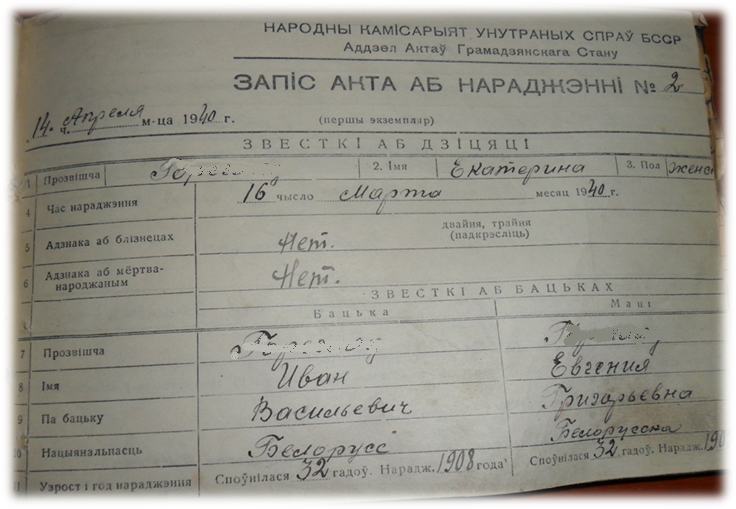 НАРОДНЫ КАМІСАРЫЯТ УНУТРАНЫХ СПРАЎ БССР
Аддзел Актаў Грамадзянскага Стану
ЗАПІС АКТА АБ НАРАДЖЭННІ № 2
14 ч. Апреля м-ца 1940 г. (першы экземпляр)
ЗВЕСТКІ АБ ДЗІЦЯЦІ
Прозвішча 2. Імя Екатерина 3. Пол женс
4 Час нараджэння 16 чысло Марта месяц 1940 г.
5 Адзнака аб близнецах Нет. двайня, трайня
(падкрэсліць)
6 Адзнака аб мёртва-
народжаным Нет.
ЗВЕСТКІ АБ БАЦЬКАХ
Бацька Маці
7 Прозвішча
8 Імя Иван Евгения
9 Па бацьку Васильевич Григорьевна
10 Нацыянальнасць Белорусс Белорусска
Узрост і год нараджэння Споўнілася 32 гадоў. Нарадж. 1908 года Споўнілася 32 гадоў. Нарадж. 190